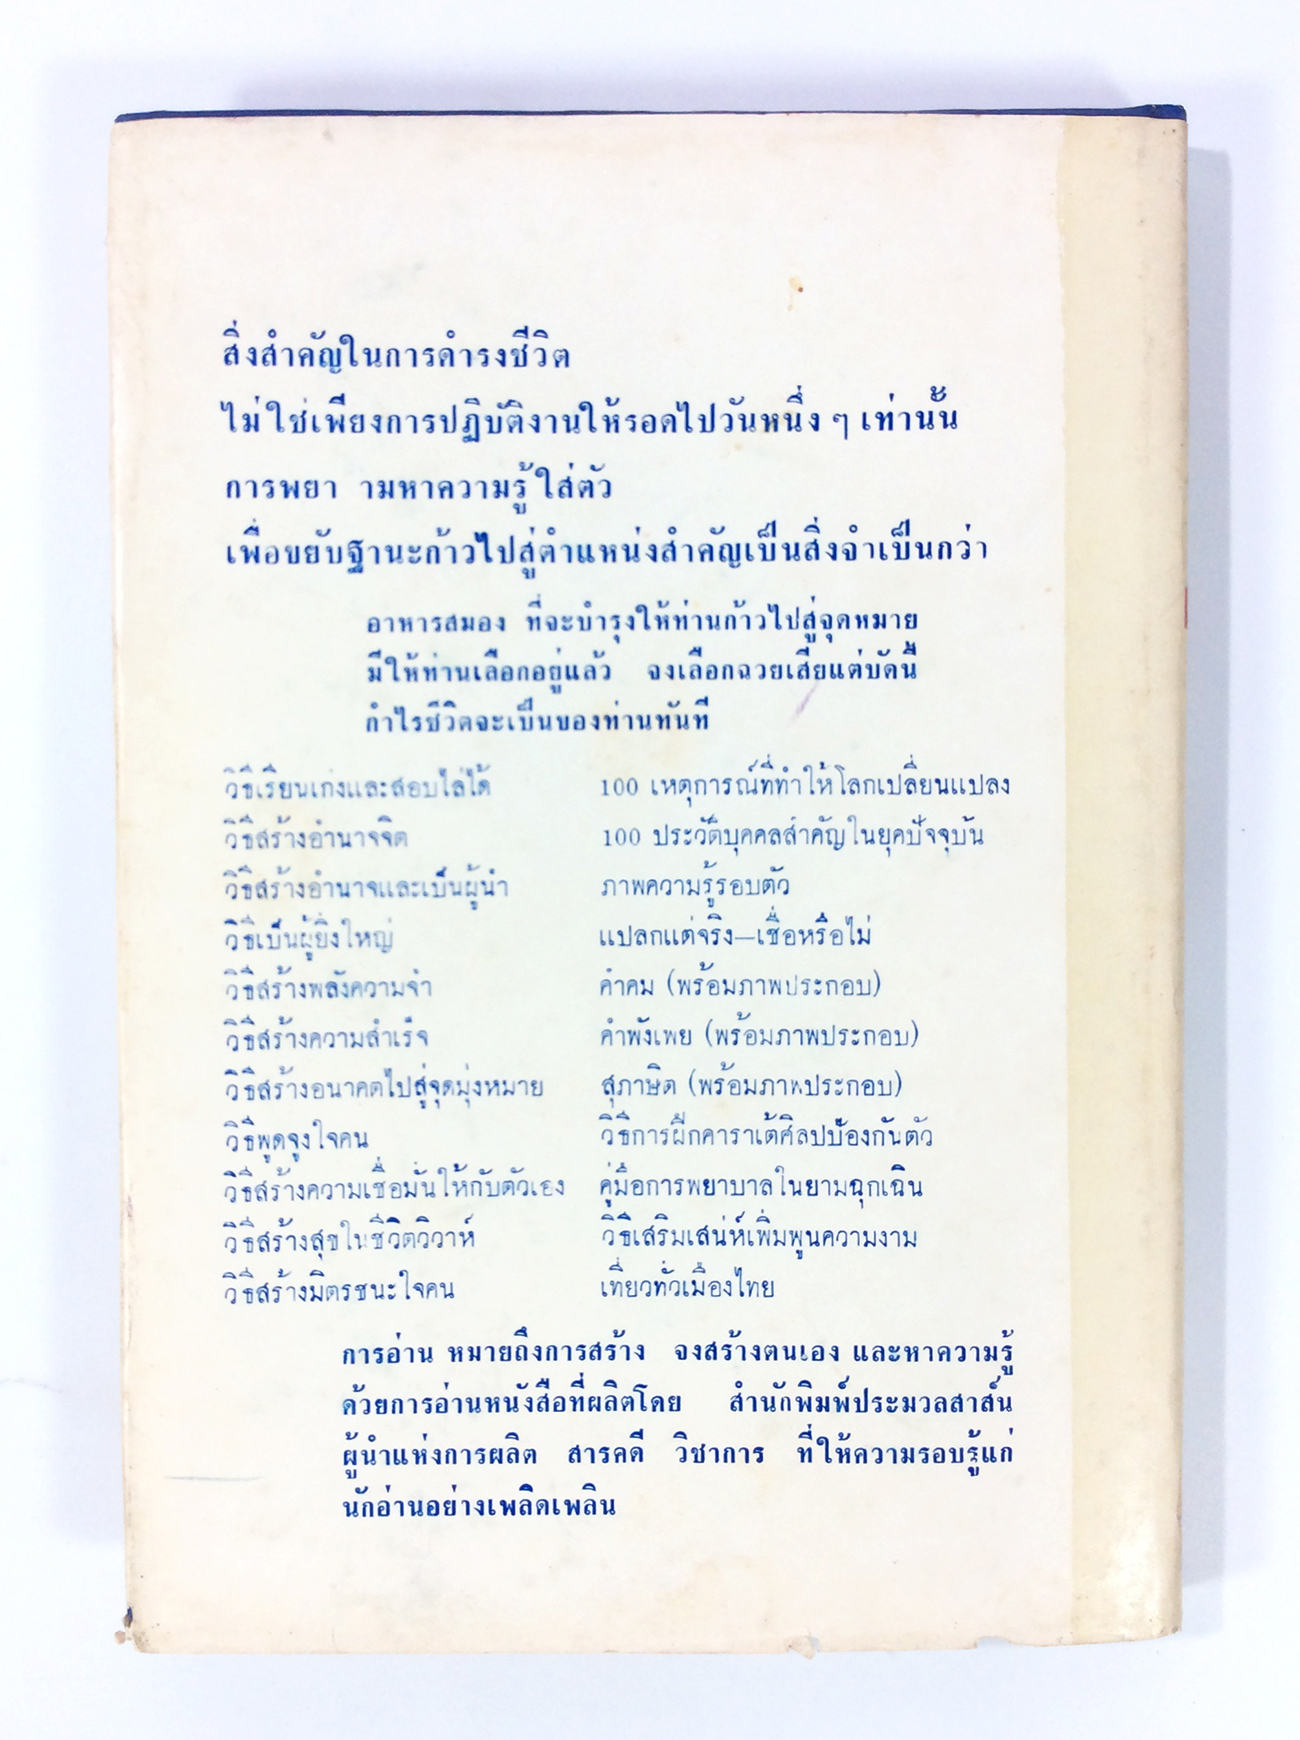 สิ่งสำคัญในการดำรงชีวิต
ไม่ใช่เพียงการปฏิบัติงานให้รอดไปวันหนึ่ง ๆ เท่านั้น
การพยา ามหาความรู้ใส่ตัว
เพื่อขยับฐานะก้าวไปสู่ตำแหน่งสำคัญเป็นสิ่งจำเป็นกว่า
อาหารสมอง ที่จะบำรุงให้ท่านก้าวไปสู่จุดหมาย
มีให้ท่านเลือกอยู่แล้ว จงเลือกฉวยเสียแต่บัดนี้
กำไรชีวิตจะเป็นของท่านทันที
วิธีเรียนเก่งและสอบไล่ได้
วิธีสร้างอำนาจจิต
วิธีสร้างอำนาจและเป็นผู้นำ
วิธีเป็นผู้ยิ่งใหญ่
วิธีสร้างพลังความจำ
วิธีสร้างความสำเร็จ
วิธีสร้างอนาคตไปสู่จุดมุ่งหมาย
วิธีพูดจูงใจคน
วิธีสร้างความเชื่อมั่นให้กับตัวเอง
วิธีสร้างสุขในชีวิตวิวาห์
วิธีสร้างมิตรชนะใจคน
100 เหตุการณ์ที่ทำให้โลกเปลี่ยนแปลง
100 ประวัติบุคคลสำคัญในยุคปัจจุบัน
ภาพความรู้รอบตัว
แปลกแต่จริง—เชื่อหรือไม่
คำคม (พร้อมภาพประกอบ)
คำพังเพย (พร้อมภาพประกอบ)
สุภาษิต (พร้อมภาพประกอบ)
วิธีการฝึกคาราเต้ศิลปป้องกันตัว
คู่มือการพยาบาลในยามฉุกเฉิน
วิธีเสริมเสน่ห์เพิ่มพูนความงาม
เที่ยวทั่วเมืองไทย
การอ่าน หมายถึงการสร้าง จงสร้างตนเอง และหาความรู้
ด้วยการอ่านหนังสือที่ผลิตโดย สำนักพิมพ์ประมวลสาส์น
ผู้นำแห่งการผลิต สารคดี วิชาการ ที่ให้ความรอบรู้แก่
นักอ่านอย่างเพลิดเพลิน